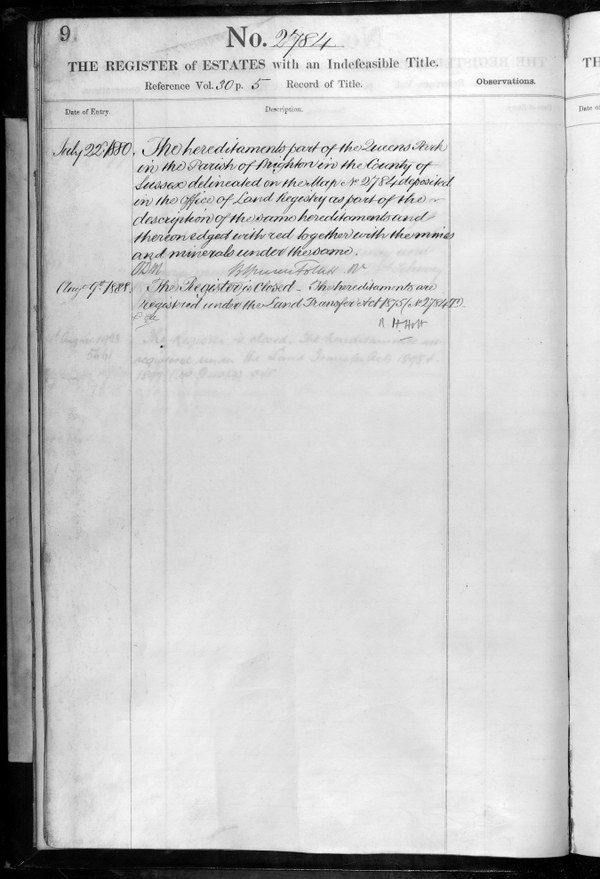 9.
No. 2784
THE REGISTER of ESTATES with an Indefeasible Title.
Reference Vol. 30 p. 5 Record of Title.
Observations.
Date of Entry.
Description.
July 22d 1880.
The hereditaments part of the Queens Park
in the Parish of Brighton in the County of
Sussex delineated on the Map No 2784 deposited
in the Office of Land Registry as part of the
description of the same hereditaments and
thereon edged with red together with the mines
and minerals under the same.
Augt 9th 1888.
The Register is closed – The hereditaments are
registered under the Land Transfer Act 1875
R H Holt
TH
Date of